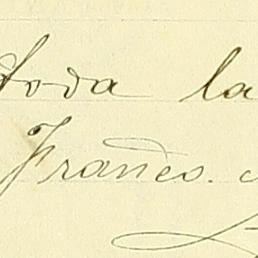 toda la
Franco.